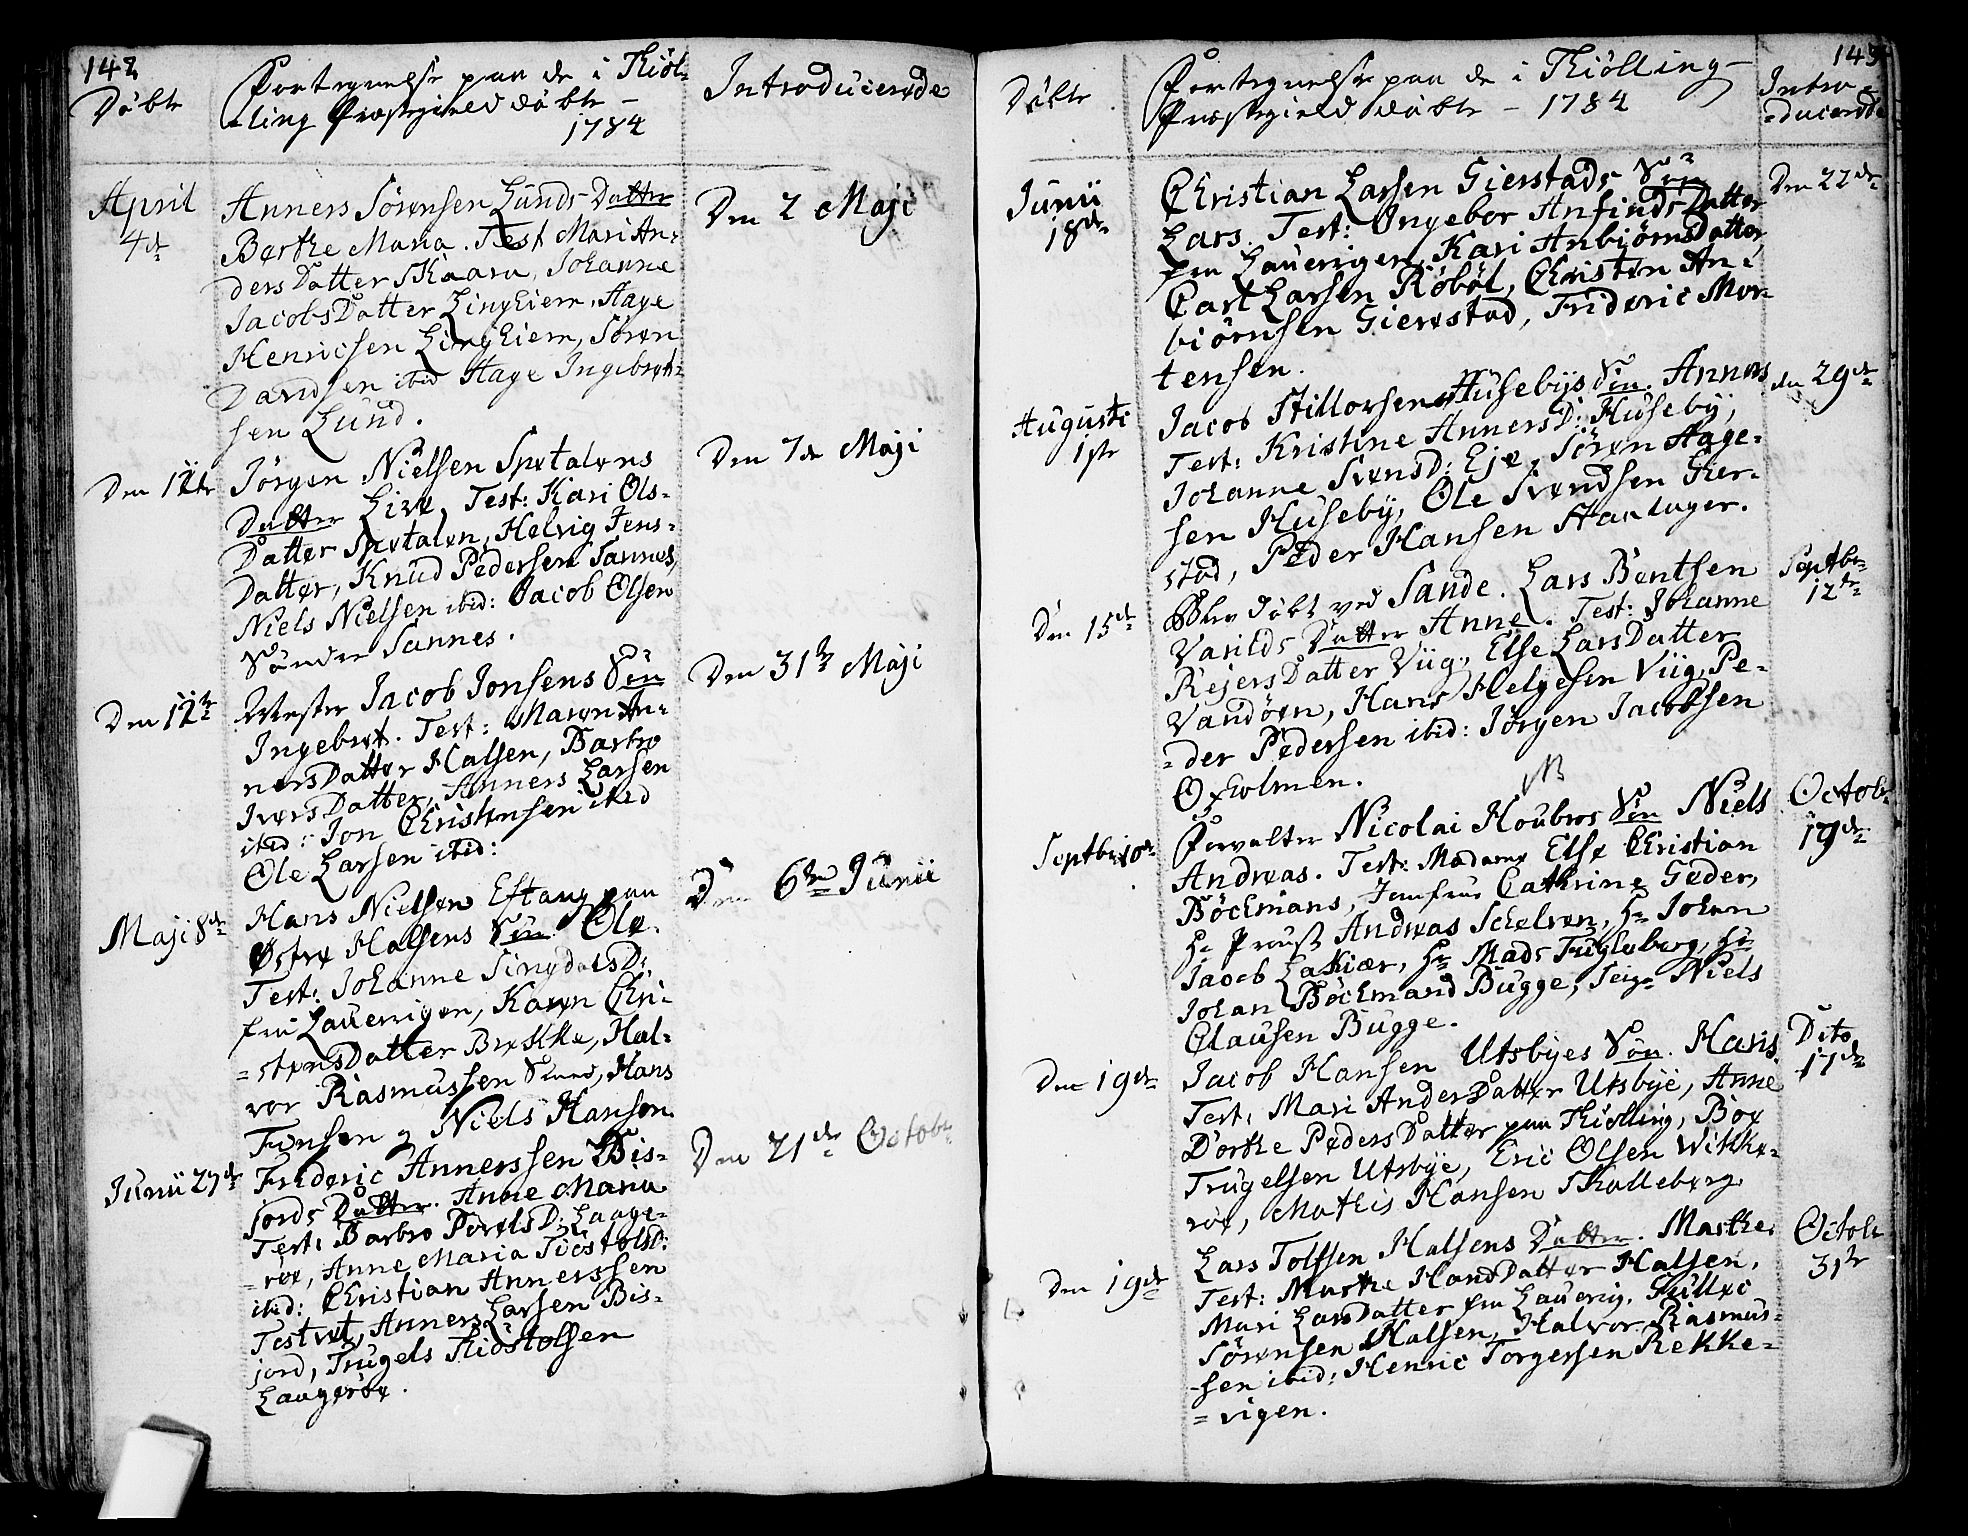 142
Döbte
Fortegnelse paa de i Kiöl-
ling Præstegield döbte -
1784
Introducerede
April
4de
Anners Sörensen Lunds Datter
Berthe Maria. Test Mari An-
dersDatter Skaara, Johanne
JacobsDatter Lingheim, Hage
Henricsen Lingheim, Sören
Davidsen ibid Hage Ingebret-
sen Lund.
Den 2 Maji
Den 12te
Jörgen Nielsen Spetalens
Datter Live, Test: Kari Ols-
Datter Spetalen, Helvig Jens-
Datter, Knud Pedersen Sannes,
Niels Nielsen ibid: Jacob Olsen
Söndre Sannes.
Den 7de Maji
Den 12te
Mester Jacob Jonsens Sön
Ingebret. Test: Maren An-
nersDatter Halsen, Barbro
IversDatter, Anners Larsen
ibid: Jon Christensen ibid
Ole Larsen ibid:
Den 31te Maji
Maji 8de
Hans Nielsen Eftang paa
Östre Halsens Sön Ole.
Test: Johanne SingdalsD:
fra Lauerigen, Karen Chri-
=stensDatter Brekke, Hal-
vor Rasmussen, Hans
Fonsen og Niels Hansen
Den 6te Junii
Junii 27de
Frideric Annerssen Bis-
jords Datter. Anne Maria
Test: Barbro PovelsD: Lauge-
=röe, Anne Maria TiöstolsD:
ibid: Christian Annerssen
Testvet, Anners Larsen Bis-
jord, Trugels Tiöstolsen
Laugeröe.
Den 21de Octobr
143
Döbte
Fortegnelse paa de i Kiölling-
Præstegield döbte - 1784
Intro=
=ducerede
Junii
18de
Christian Larsen Gierstads Sön
Lars. Test: Ingebor AnfindsDatter
fra Lauerigen, Kari AnbiörnsDatter
Carl Larsen Röböl, Christen An-
biörnsen Gierestad, Frideric Mor-
tensen.
Den 22de
Augusti
1ste
Jacob Stillorsen Husebys Sön. Anners
Test: Kristine AnnersD: Huseby,
Johanne SvensD: Eje, Sören Hage-
sen Huseby, Ole Svendsen Gier-
stad, Peder Hansen Haslager.
den 29de
Den 15de
Blev döbt ved Sande. Lars Bentsen
Varilds Datter Anne. Test: Johanne
RejersDatter Viig, Else LarsDatter
Vandöen, Hans Helgesen Viig, Pe-
=der Pedersen ibid: Jörgen Jacobsen
Oxholmen.
Septbr
12te
NB
Septbr 10de
Forvalter Nicolai Houbros Sön Niels
Andreas. Test: Madame Else Christian
Böckmans, Jomfrue Cathrine Geder,
Hr Proust Andreas Schelven, Hr Johan
Jacob Lakier, Hr Mads Fugleberg, Hr
Johan Böckmand Bugge, Seigr Niels
Clausen Bugge.
Octobr
19de
Den 19de
Jacob Hansen Utsbyes Sön. Hans
Test: Mari AndersDatter Utsbye, Anne
Dorthe PedersDatter paa Kiölling, Boe
Trugelsen Utsbye, Eric Olsen Wikke-
röe, Mathis Hansen Skalleberg.
Dito
17de
Den 19de
Lars Tolfsen Halsens Datter. Marthe.
Test: Marthe HansDatter Halsen,
Mari LarsDatter fra Lauerig, Gullec
Sörensen Halsen, Halvor Rasmus-
-sen ibid: Henric Torgersen Rekke=
=vigen.
Octobr
31te